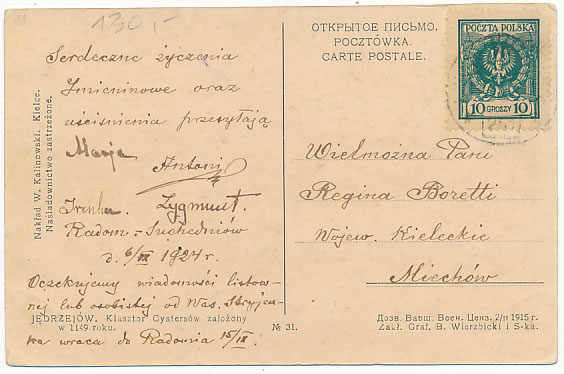 130,-
Serdeczne życzenia
Imieninowe oraz
uściśnienia przesyłają
Marja
Antoni
Zygmunt.
Radom - Suchedniów
d. 6/IX 1924 r.
Oczekujemy wiadomości listow-
nej lub osobistej od Was. Stryjen-
ka wraca do Radomia 15/IX.
JĘDRZEJÓW. Klasztor Cystersów założony
w 1149 roku.
№ 31.
Nakład W. Kalinowski. Kielce.
Naśladownictwo zastrzeżone.
ОТКРЫТОЕ ПИСЬМО.
POCZTÓWKA.
CARTE POSTALE.
POCZTA POLSKA
10 GROSZY 10
Wielmożna Pani
Regina Boretti
Wojew. Kieleckie
Miechów
Дозв. Варш. Воен. Ценз. 2/II 1915 г.
Zakł. Graf. B. Wierzbicki i S-ka.